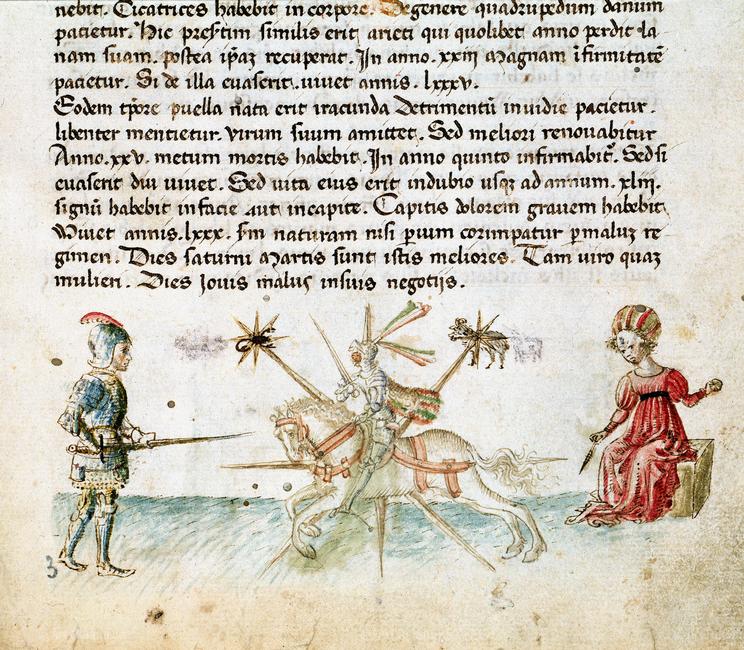 nebit. Cicatrices habebit in corpore. De genere quadrupedum danum
pacietur. Hic presetim similis erit arieti qui quolibet anno perdit la
nam suam. postea ip̃az recuperat. In anno .xxiii magnam ĩfirmitatẽ
pacietur. Si de illa euaserit. uiuet annis. lxxxv.
Eodem tp̃ore puella nata erit iracunda Detrimentũ inuidie pacietur.
libenter mentietur. virum suum amittet. Sed meliori renouabitur
Anno .xxv. metum mortis habebit. In anno quinto infirmabit̃. Sed si
euaserit diu uiuet. Sed uita eius erit in dubio usqz ad annum. xliii.
signũ habebit in facie aut in capite. Capitis dolorem grauem habebit.
Viuet annis .lxxx. s̃m naturam nisi p̱ uium corũpatur p̱ maluz re
gimen. Dies saturni Martis sunt istis meliores. Tam uiro quaz
mulieri. Dies Jouis malus in suis negotijs.
3